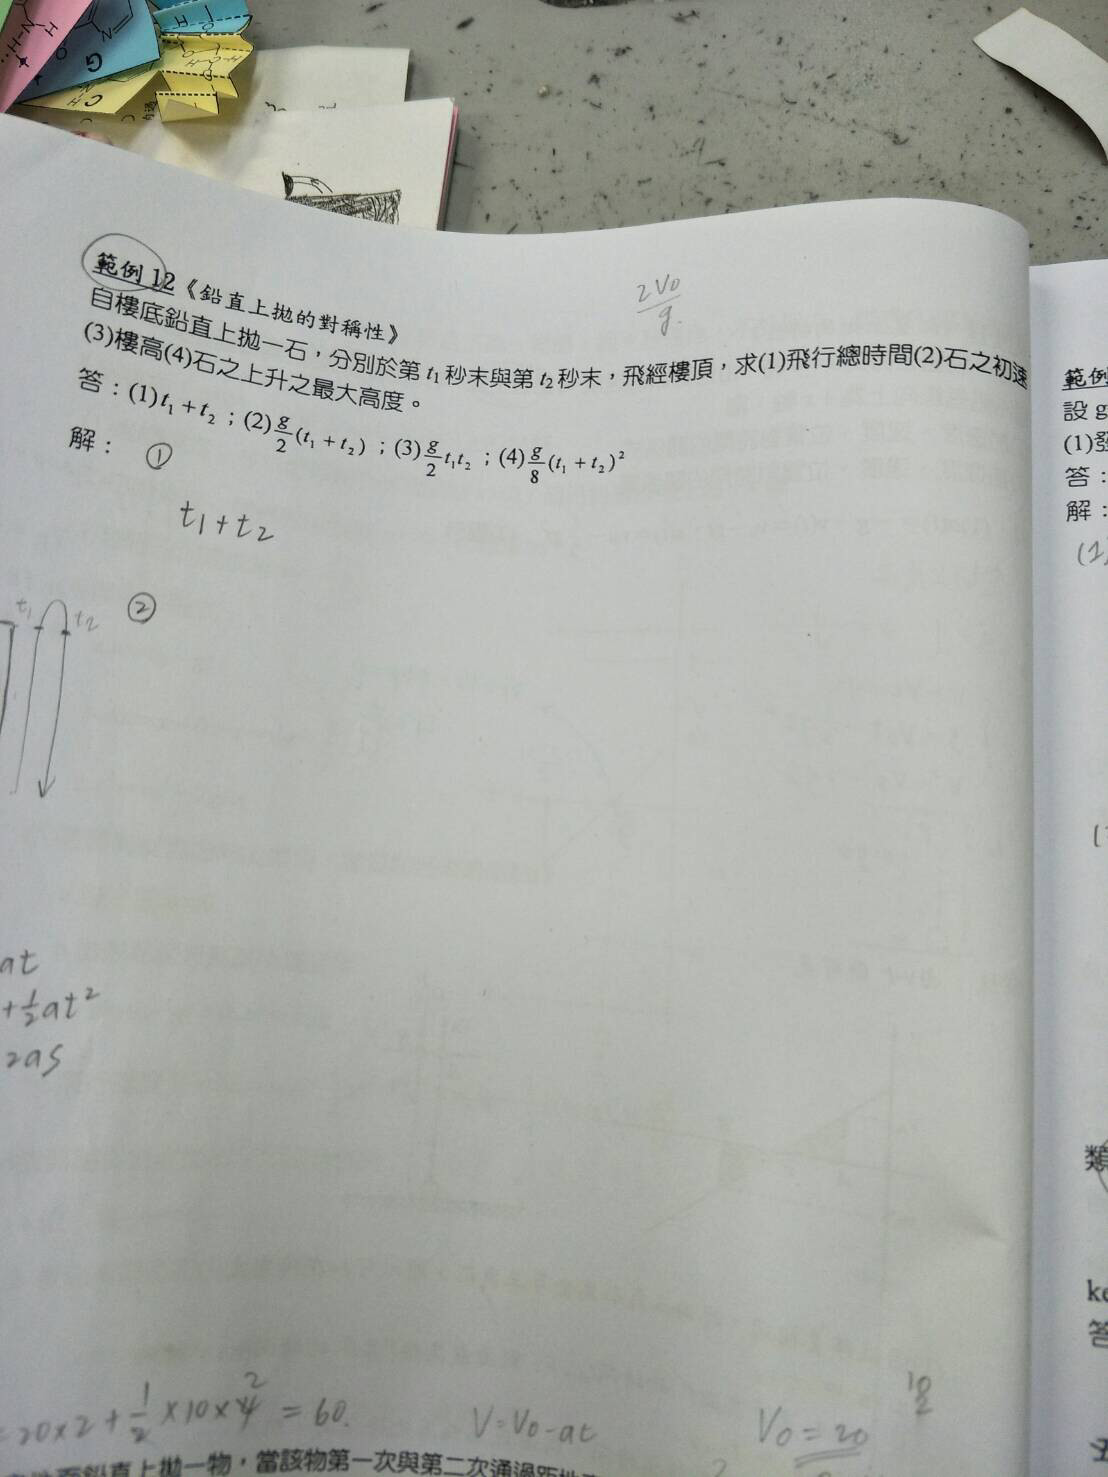 範例 12《鉛直上拋的對稱性》
2V0/g.
自樓底鉛直上拋一石，分別於第 t₁ 秒末與第 t₂ 秒末，飛經樓頂，求(1)飛行總時間(2)石之初速
(3)樓高(4)石之上升之最大高度。
答：(1)t₁ + t₂；(2)g/2(t₁ + t₂)；(3)g/2 t₁t₂；(4)g/8(t₁ + t₂)²
解： ①
t₁+t₂
t₁ t₂ ②
at
+½at²
2as
=20×2+½×10×4² = 60.
V=V₀-at
V₀=20
10/2
鉛直上拋一物，當該物第一次與第二次通過距地
範例
設 g
(1)
答：
解：
類
答